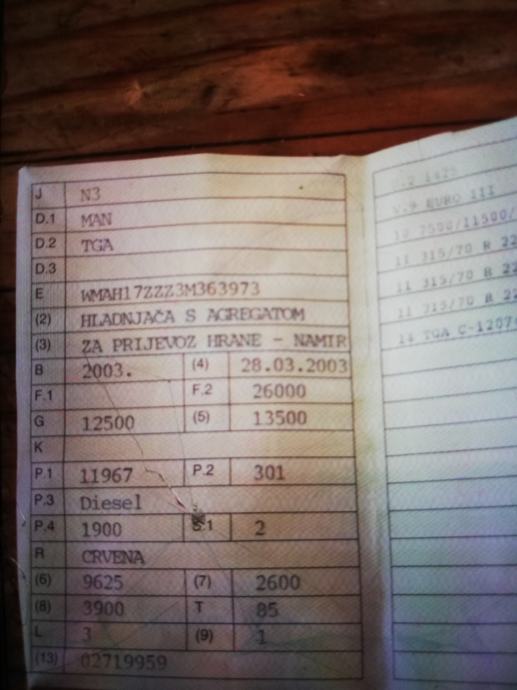 J N3
D.1 MAN
D.2 TGA
D.3
E WMAH17ZZZ3M363973
(2) HLADNJAČA S AGREGATOM
(3) ZA PRIJEVOZ HRANE - NAMIR
B 2003. (4) 28.03.2003
F.1 F.2 26000
G 12500 (5) 13500
K
P.1 11967 P.2 301
P.3 Diesel
P.4 1900 S.1 2
R CRVENA
(6) 9625 (7) 2600
(8) 3900 T 85
L 3 (9) 1
(13) 02719959
V.9 EURO III
10 7500/11500/
11 315/70 R 22
11 315/70 R 22
11 315/70 R 22
14 TGA